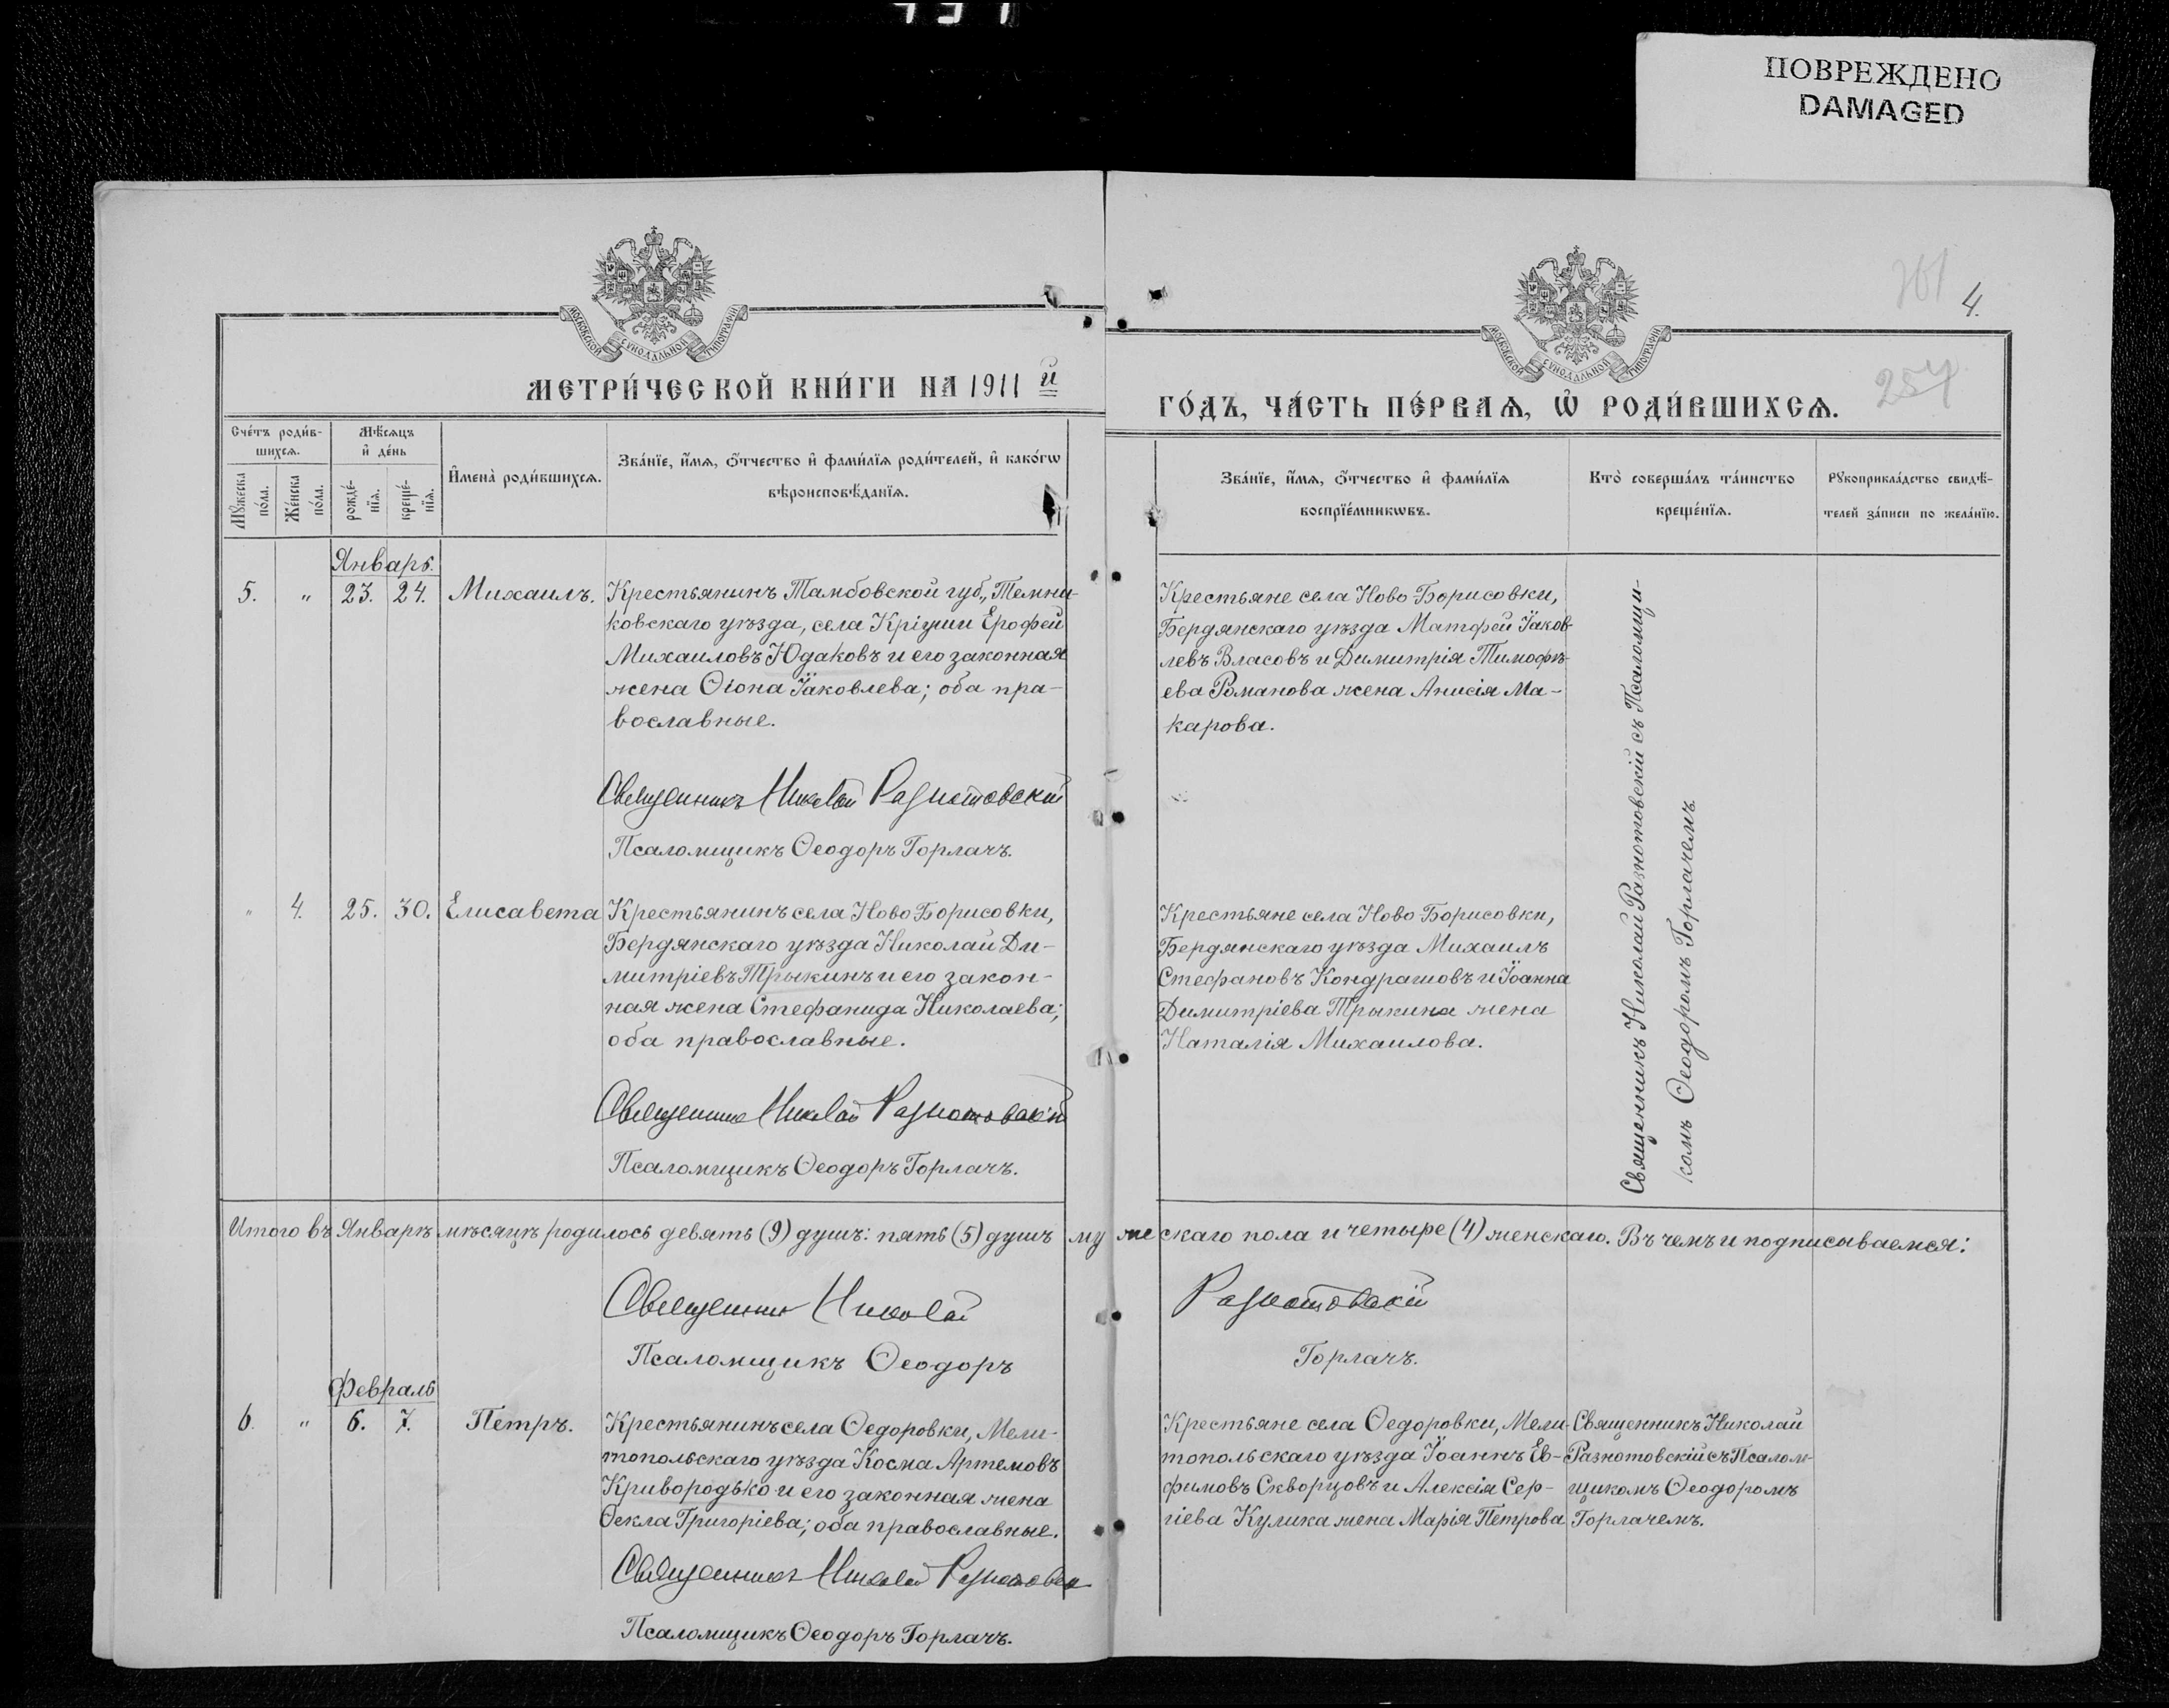 ПОВРЕЖДЕНО
DAMAGED
4.
257
МОСКОВСКОЙ СУНОДАЛЬНОЙ ТИПОГРАФІИ
МОСКОВСКОЙ СУНОДАЛЬНОЙ ТИПОГРАФІИ
МЕТРИ́ЧЕСКОЙ КНИ́ГИ НА 1911 й
ГО́ДЪ, ЧА́СТЬ ПЕ́РВАѦ, Ѡ҆ РОДИ́ВШИХСѦ.
Сче́тъ роди́в-
шихсѧ.
Мꙋ́жеска
по́ла.
Же́нска
по́ла.
Мѣ́сѧцъ
и҆ де́нь
рожде́-
нїѧ.
креще́-
нїѧ.
И҆мена̀ роди́вшихсѧ.
Зва́нїе, и҆́мѧ, ѻ҆́тчество и҆ фами́лїѧ роди́телей, и҆ како́гѡ
вѣроисповѣ́данїѧ.
Зва́нїе, и҆́мѧ, ѻ҆́тчество и҆ фами́лїѧ
воспрїе́мникѡвъ.
Кто̀ соверша́лъ та́инство
креще́нїѧ.
Рꙋкоприкла́дство свидѣ́-
телей за́писи по жела́нїю.
Январь.
5. " 23. 24. Михаилъ.
Крестьянинъ Тамбовской губ., Темни-
ковскаго уѣзда, села Кріуши Ерофей
Михаиловъ Юдаковъ и его законная
жена Ѳіона Іаковлева; оба пра-
вославные.
Священникъ Николай Разнотовскій
Псаломщикъ Ѳеодоръ Горлачъ.
Крестьяне села Ново-Борисовки,
Бердянскаго уѣзда Матѳей Іаков-
левъ Власовъ и Димитрія Тимоѳѣ-
ева Романова жена Анисія Ма-
карова.
Священникъ Николай Разнотовскій съ Псаломщи-
комъ Ѳеодоромъ Горлачемъ
" 4. 25. 30. Елисавета
Крестьянинъ села Ново Борисовки,
Бердянскаго уѣзда Николай Ди-
митріевъ Трыкинъ и его закон-
ная жена Стефанида Николаева;
оба православные.
Священникъ Николай Разнотовскій
Псаломщикъ Ѳеодоръ Горлачъ.
Крестьяне села Ново Борисовки,
Бердянскаго уѣзда Михаилъ
Стефановъ Кондрашовъ и Іоанна
Димитріева Трыкина жена
Наталія Михаилова.
Итого въ Январѣ мѣсяцѣ родилось девять (9) душъ: пять (5) душъ мужескаго пола и четыре (4) женскаго. Въ чемъ и подписываемся:
Священникъ Николай Разнотовскій
Псаломщикъ Ѳеодоръ Горлачъ.
Февраль
6. " 6. 7. Петръ.
Крестьянинъ села Ѳедоровки, Мели-
топольскаго уѣзда Косма Артемовъ
Кривородько и его законная жена
Ѳекла Григоріева; оба православные.
Священникъ Николай Разнотовск
Псаломщикъ Ѳеодоръ Горлачъ.
Крестьяне села Ѳедоровки, Мели-
топольскаго уѣзда Іоаннъ Ев-
фимовъ Скворцовъ и Алексія Сер-
гіева Кулика жена Марія Петрова
Священникъ Николай
Разнотовскій съ Псалом-
щикомъ Ѳеодоромъ
Горлачемъ.